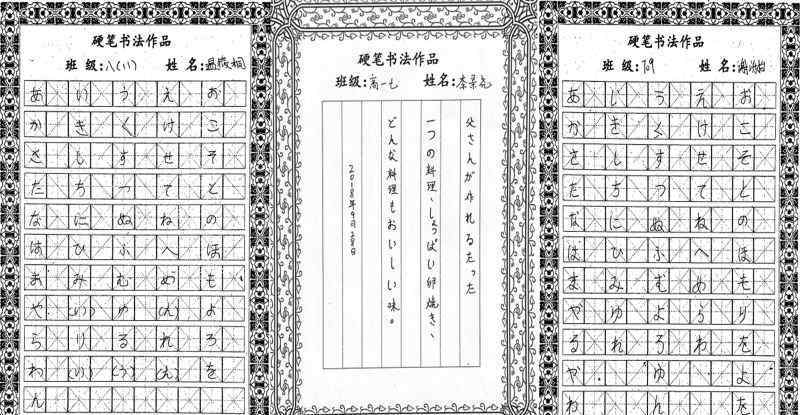 硬笔书法作品
班 级:八(11) 姓 名:
あ い う え お
か き く け こ
さ し す せ そ
た ち つ て と
な に ぬ ね の
は ひ ふ へ ほ
ま み む め も
や (い) ゆ (え) よ
ら り る れ ろ
わ (い) (う) (え) を
ん
硬笔书法作品
班 级:高一七 姓名:
父さんが作れるたった
一つの料理、しょっぱい卵焼き、
どんな料理もおいしい味。
2018年9月28日
硬笔书法作品
班 级:709 姓 名:
あ い う え お
か き く け こ
さ し す せ そ
た ち つ て と
な に ぬ ね の
は ひ ふ へ ほ
ま み む め も
や ゆ よ ら り
る れ ろ わ を
や ゆ よ
わ ん を